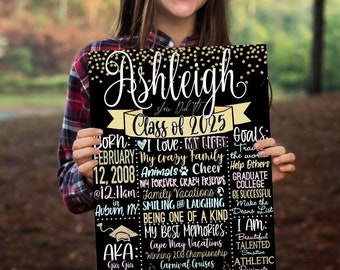 Ashleigh
You Did It
Class of 2025
Born:
FEBRUARY
12, 2008
@12:11am
in Auburn, NY
AKA
Gia Gia
I LOVE: MY LIFE!
My Crazy Family
Animals Cheer
MY FOREVER CRAZY FRIENDS
Family Vacations
SMILING and LAUGHING
BEING ONE OF A KIND
My Best Memories:
Cape May Vacations
Winning 2013 Championship
Carnival Cruises
Goals:
Travel
the World
Help Others
GRADUATE
COLLEGE
BE SUCCESSFUL
Make the
Dean's List
I Am:
Beautiful
TALENTED
Sensitive
ATHLETIC